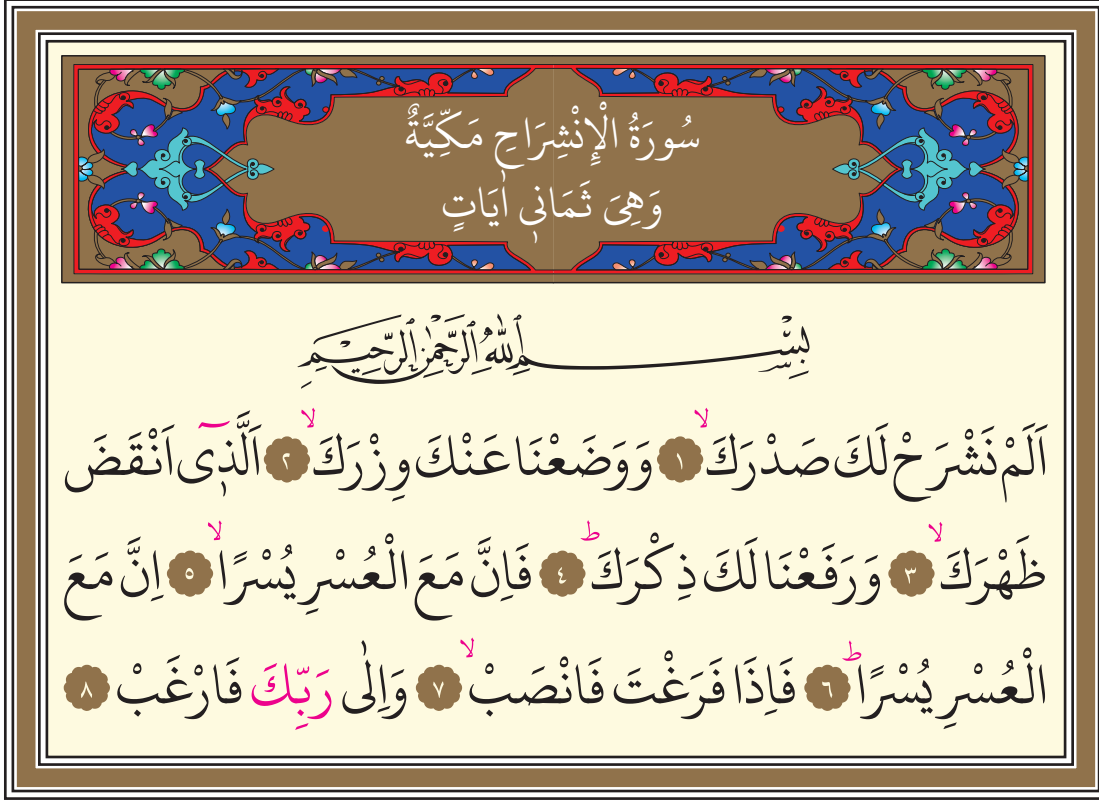 سُورَةُ الْإِنْشِرَاحِ مَكِّيَّةٌ
وَهِىَ ثَمَانٖى اٰيَاتٍ
بِسْمِ اللّٰهِ الرَّحْمٰنِ الرَّحٖيمِ
اَلَمْ نَشْرَحْ لَكَ صَدْرَكَۙ ١ وَوَضَعْنَا عَنْكَ وِزْرَكَۙ ٢ اَلَّذٖٓى اَنْقَضَ
ظَهْرَكَۙ ٣ وَرَفَعْنَا لَكَ ذِكْرَكَؕ ٤ فَاِنَّ مَعَ الْعُسْرِ يُسْرًاۙ ٥ اِنَّ مَعَ
الْعُسْرِ يُسْرًاؕ ٦ فَاِذَا فَرَغْتَ فَانْصَبْۙ ٧ وَاِلٰى رَبِّكَ فَارْغَبْ ٨